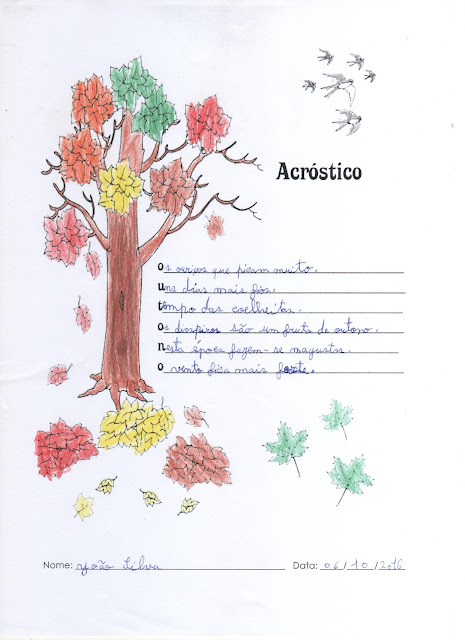 Acróstico
Os ouriços que picam muito.
Uns dias mais frios.
tempo das coelheitas.
Os diospiros são um fruto de outono.
Nesta época fazem-se magustos.
O vento fica mais forte.
Nome: João Silva Data: 06/10/2016